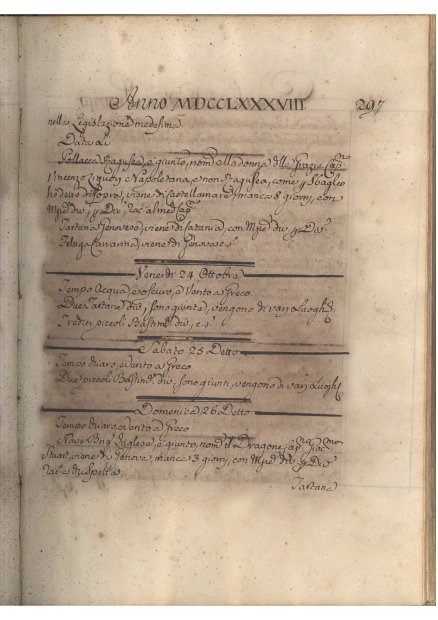 Anno MDCCLXXXVIII. 297
nella Legislazione medesima
Data Li
Pollacca Ragusea, è giunta, nom.ta Madonna delle Grazie Cap.n
Vincenzo Napoletana, e non Ragusea, come p Sbaglio
di Sopra, viene di Castellamare, manca 8 giorni, con
Mrie div. p Div. al med. Cap.n
Tartana Genovese, viene di Catania, con Mrie div. p Div.
Feluga Carrarina, viene di Genova c.s
Venerdi 24 Ottobre
Tempo Acqua, e oscuro, e Vento a Greco
Due Tartane div. sono giunte, vengono di varj Luoghi
Tredici piccoli Bastim.ti div. c.s
Sabato 25 Detto
Tempo chiaro, e Vento a Greco
Due piccoli Bastim.ti div. sono giunti, vengono di varj Luoghi
Domenica 26 Detto
Tempo chiaro, e Vento a Greco
Nave Inglese, è giunta, nom.ta il Dragone Cap.n
Stuar, viene di Genova, manca 3 giorni, con Mrie div. p Div.
Tartana